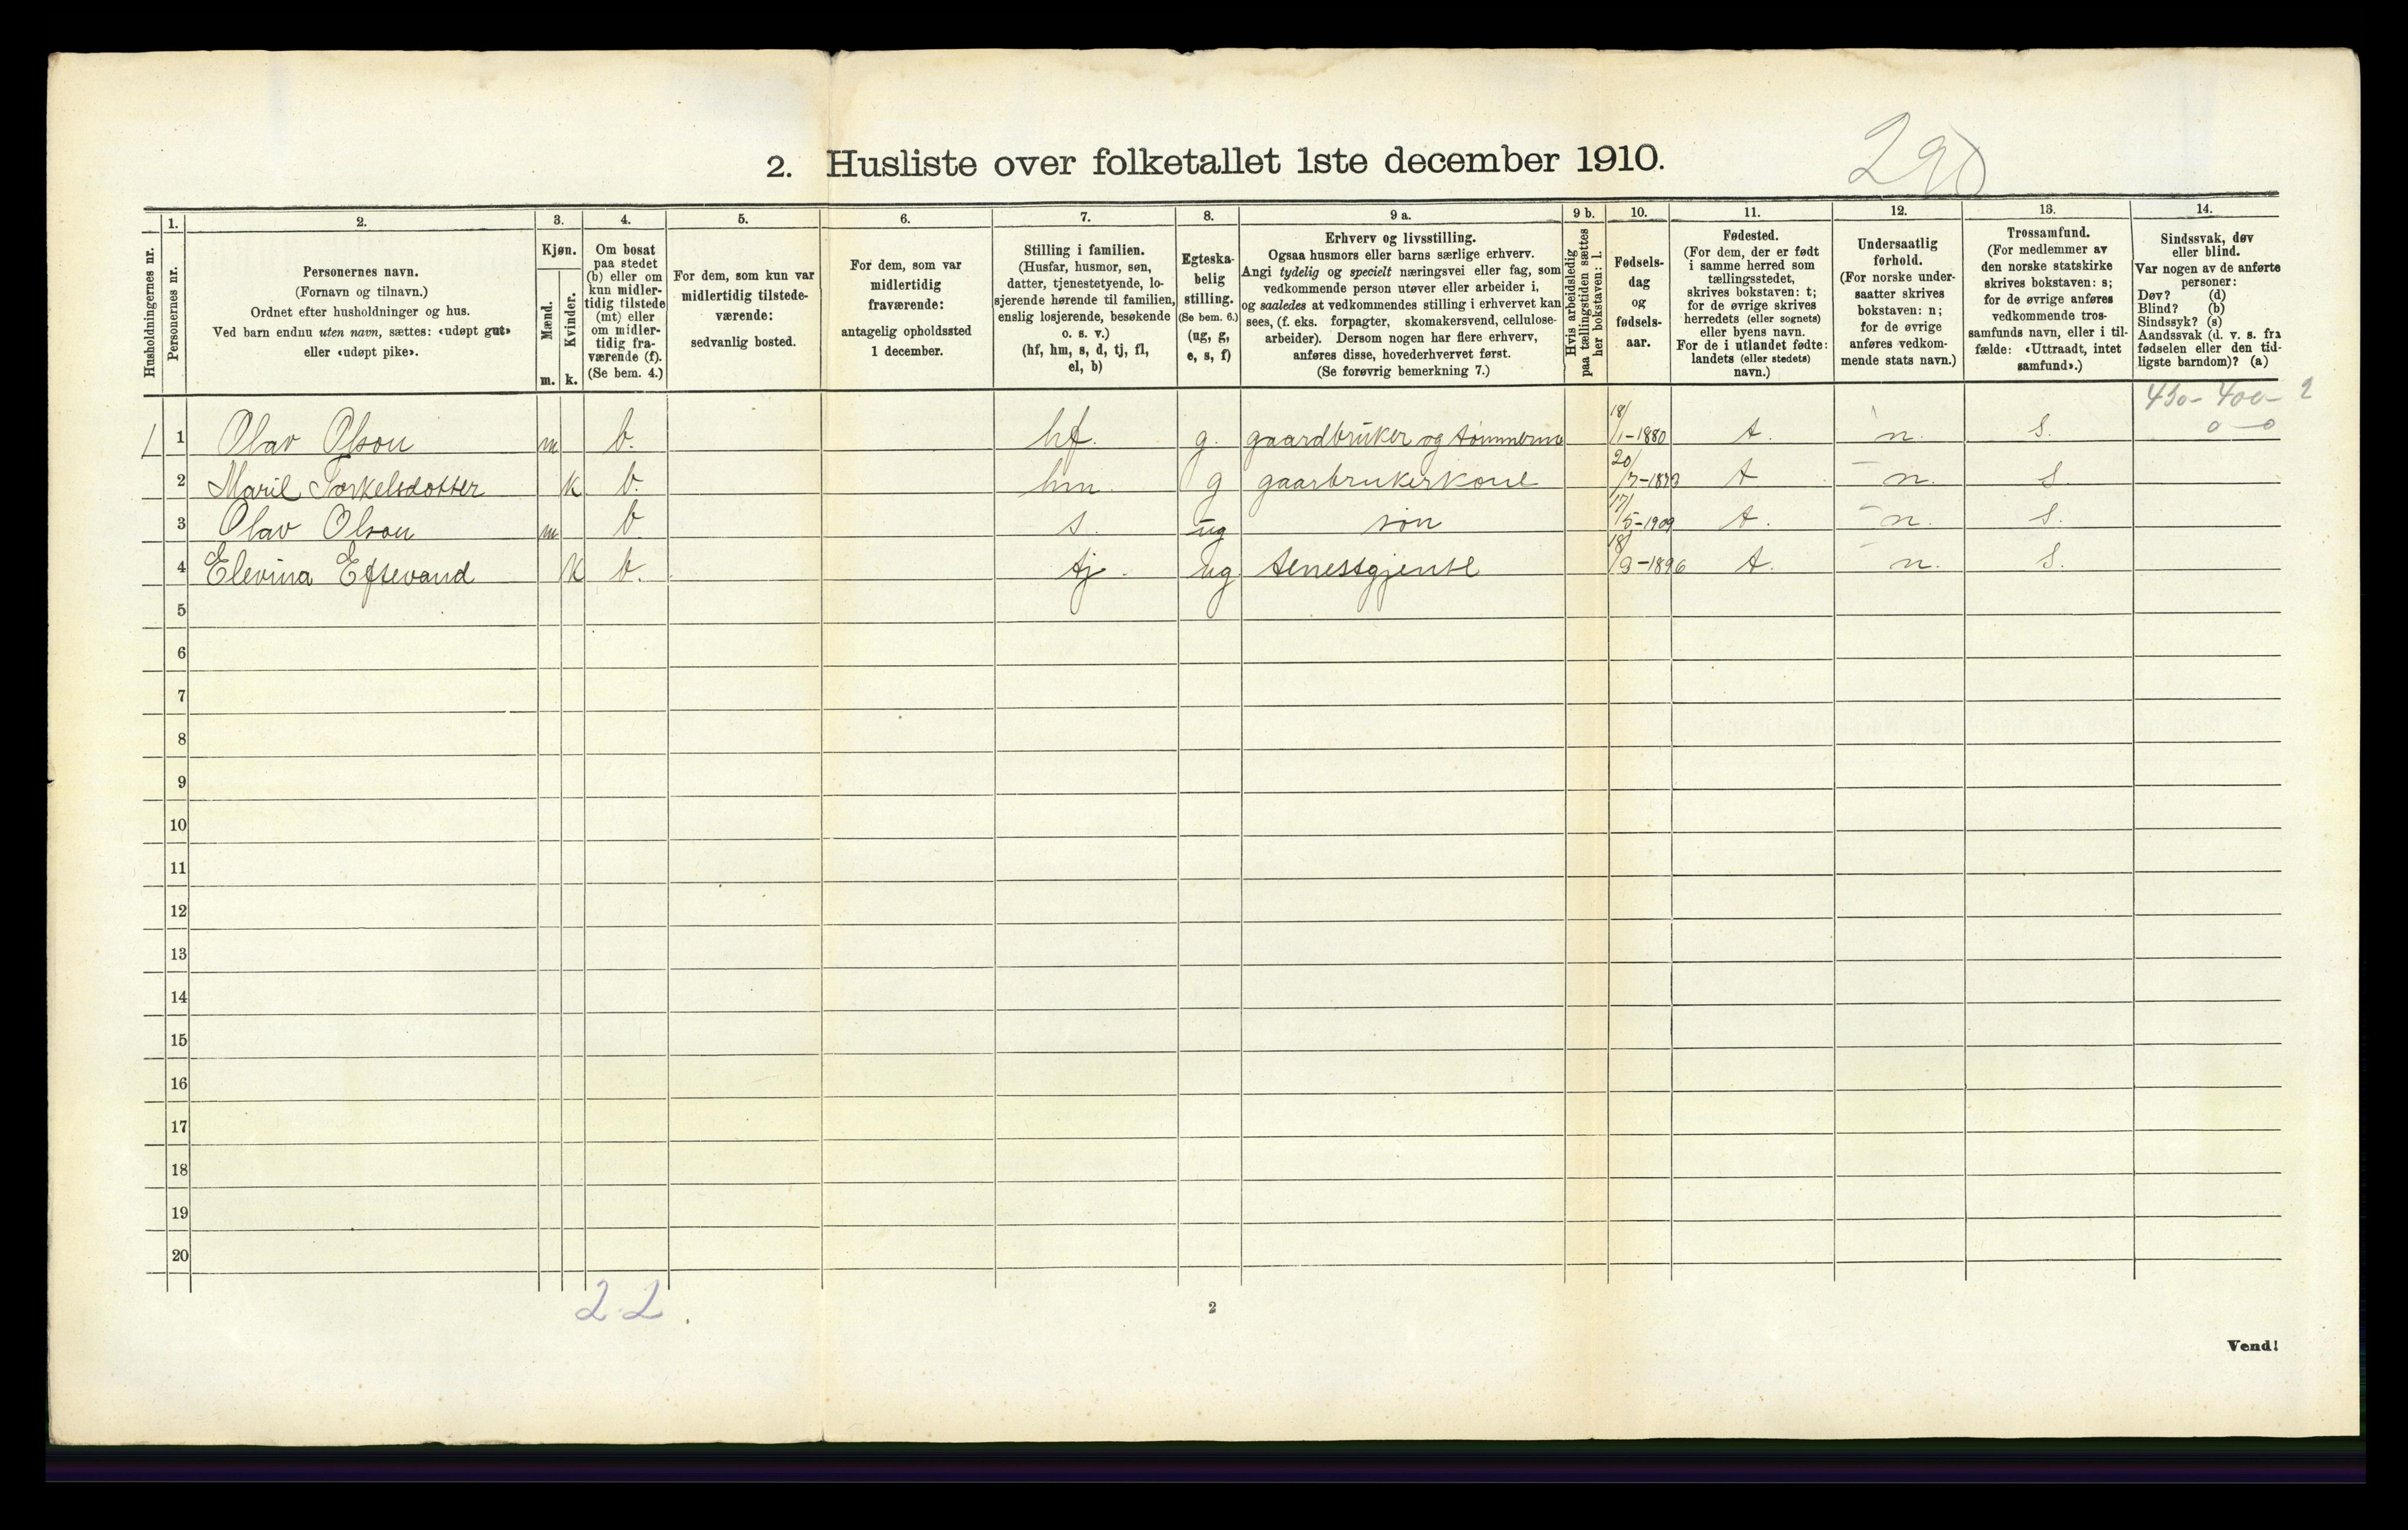 290
2. Husliste over folketallet 1ste december 1910.
Husholdningernes nr.
1.
Personernes nr.
2.
Personernes navn.
(Fornavn og tilnavn.)
Ordnet efter husholdninger og hus.
Ved barn endnu uten navn, sættes: «udøpt gut»
eller «udøpt pike».
3.
Kjøn.
Mænd.
Kvinder.
m. k.
4.
Om bosat
paa stedet
(b) eller om
kun midler-
tidig tilstede
(mt) eller
om midler-
tidig fra-
værende (f).
(Se bem. 4.)
5.
For dem, som kun var
midlertidig tilstede-
værende:
sedvanlig bosted.
6.
For dem, som var
midlertidig
fraværende:
antagelig opholdssted
1 december.
7.
Stilling i familien.
(Husfar, husmor, søn,
datter, tjenestetyende, lo-
sjerende hørende til familien,
enslig losjerende, besøkende
o. s. v.)
(hf, hm, s, d, tj, fl,
el, b)
8.
Egteska-
belig
stilling.
(Se bem. 6.)
(ug, g,
e, s, f)
9 a.
Erhverv og livsstilling.
Ogsaa husmors eller barns særlige erhverv.
Angi tydelig og specielt næringsvei eller fag, som
vedkommende person utøver eller arbeider i,
og saaledes at vedkommendes stilling i erhvervet kan
sees, (f. eks. forpagter, skomakersvend, cellulose-
arbeider). Dersom nogen har flere erhverv,
anføres disse, hovederhvervet først.
(Se forøvrig bemerkning 7.)
9 b.
Hvis arbeidsledig
paa tællingstiden sættes
her bokstaven: l.
10.
Fødsels-
dag
og
fødsels-
aar.
11.
Fødested.
(For dem, der er født
i samme herred som
tællingsstedet,
skrives bokstaven: t;
for de øvrige skrives
herredets (eller sognets)
eller byens navn.
For de i utlandet fødte:
landets (eller stedets)
navn.)
12.
Undersaatlig
forhold.
(For norske under-
saatter skrives
bokstaven: n;
for de øvrige
anføres vedkom-
mende stats navn.)
13.
Trossamfund.
(For medlemmer av
den norske statskirke
skrives bokstaven: s;
for de øvrige anføres
vedkommende tros-
samfunds navn, eller i til-
fælde: «Uttraadt, intet
samfund».)
14.
Sindssvak, døv
eller blind.
Var nogen av de anførte
personer:
Døv? (d)
Blind? (b)
Sindssyk? (s)
Aandssvak (d. v. s. fra
fødselen eller den tid-
ligste barndom)? (a)
400- 2
0-0
1 1 Olav Olson m b. hf. g. gaardbruker og tømmerm 18/1-1880 t. n. s.
2 Torkelsdotter k b. hm. g gaarbrukerkone 20/7- t n. s.
3 Olav Olson m b. s. ug søn 17/5-1909 t. n. s.
4 Elevina Eftevand k b. tj. ug tenestgjente 18/9-1896 t. n. s.
5
6
7
8
9
10
11
12
13
14
15
16
17
18
19
20
2 2.
2
Vend!